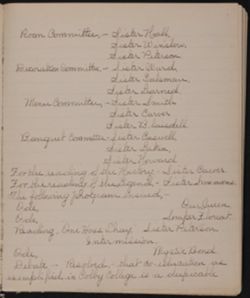 Room Committee, - Sister Hall,
Sister Winslow,
Sister Peterson
Decoration Committee, - Sister Ward,
Sister Salsman,
Sister Barnes
Menu Committee, - Sister Smith
Sister Carver
Sister B. Goodell
Banquet Committee - Sister Caswell
Sister
Sister Howard
For the reading of the History - Sister Carver
For the resolents of the Legends - Sister Simmons
The following program issued, -
Ode,
Ode,
Reading, One Hoss Shay Sister Peterson
Intermission
Ode, Mystic Bond
Debate - Resolved, - that co-education as
exemplified in Colby College is a desirable